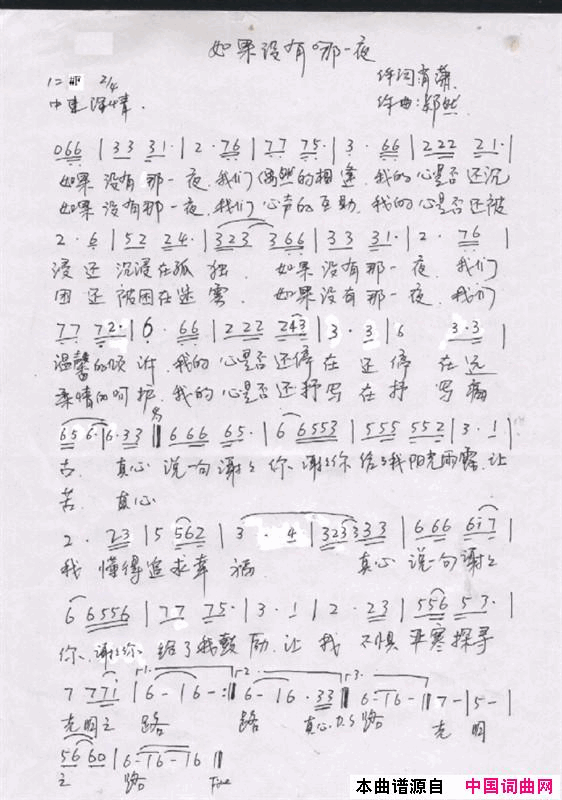 如果没有那一夜
1= 2/4 作词:肖潇
中速 深情. 作曲:郑然
066 | 33 31· | 2· 76 | 77 75· | 3· 66 | 222 21· |
如果没有那一夜.我们偶然的相逢.我的心是否还沉
如果没有那一夜.我们心声的互助.我的心是否还被
2· 6 | 52 24· | 323 366 | 33 31· | 2· 76 |
浸还沉浸在孤独. 如果没有那一夜.我们
困还被困在迷雾. 如果没有那一夜.我们
77 72· | 6· 66 | 222 243 | 3· 3 | 6 3·3 |
温馨的倾许.我的心是否还停在还停在远
柔情的呵护.我的心是否还抒写在抒写痛
656· | 6·33 𝄋 666 65· | 6 6553 | 555 552 | 3· 1 |
古. 真心说一句谢谢你.谢谢你给了我阳光雨露.让
苦. 真心
2· 23 | 5 562 | 3· 4 | 323333 | 666 6i7 |
我懂得追求幸福 真心说一句谢谢
6 6556 | 77 75· | 3· 1 | 2· 23 | 556 53· |
你.谢谢你给了我鼓励.让我不惧严寒探寻
7 77i | 1. 6- 16- :|| 2. 6- 16·33 || 3. 6- 16- || 7- | 5- |
光明之路 路 真心D.S路 光明
56 60 | 6- 16- 16 ||
之路 Fine
本曲谱源自 中国词曲网